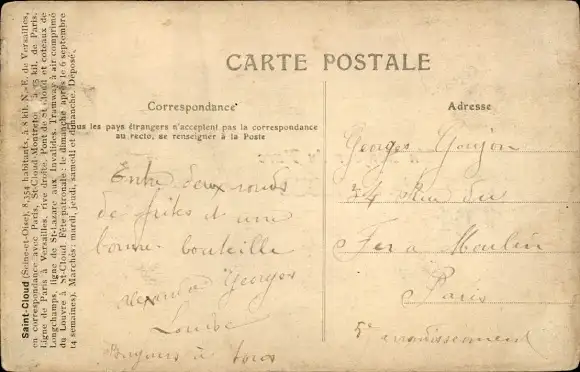 Saint-Cloud (Seine-et-Oise), 8,354 habitants, à 8 kil. N.-E. de Versailles,
en correspondance avec Paris, St-Cloud-Montretout à 15 kil. de Paris.
Ligne de Paris à Versailles, rive droite. Pont de St-Cloud et coteaux de
Longchamps, ligne de St-Lazare aux Invalides. Tramway à air comprimé
du Louvre à St-Cloud. Fête patronale: le dimanche après le 6 septembre
14 semaines). Marchés: mardi, jeudi, samedi et dimanche. Déposé.
CARTE POSTALE
Correspondance
us les pays étrangers n'acceptent pas la correspondance
au recto, se renseigner à la Poste
Entre deux ronds
de frites et une
bonne bouteille
Georges
Louise
Bonjours à tous
Adresse
Georges Goujon
Rue du
Fer a Moulin
Paris
5e arrondissement